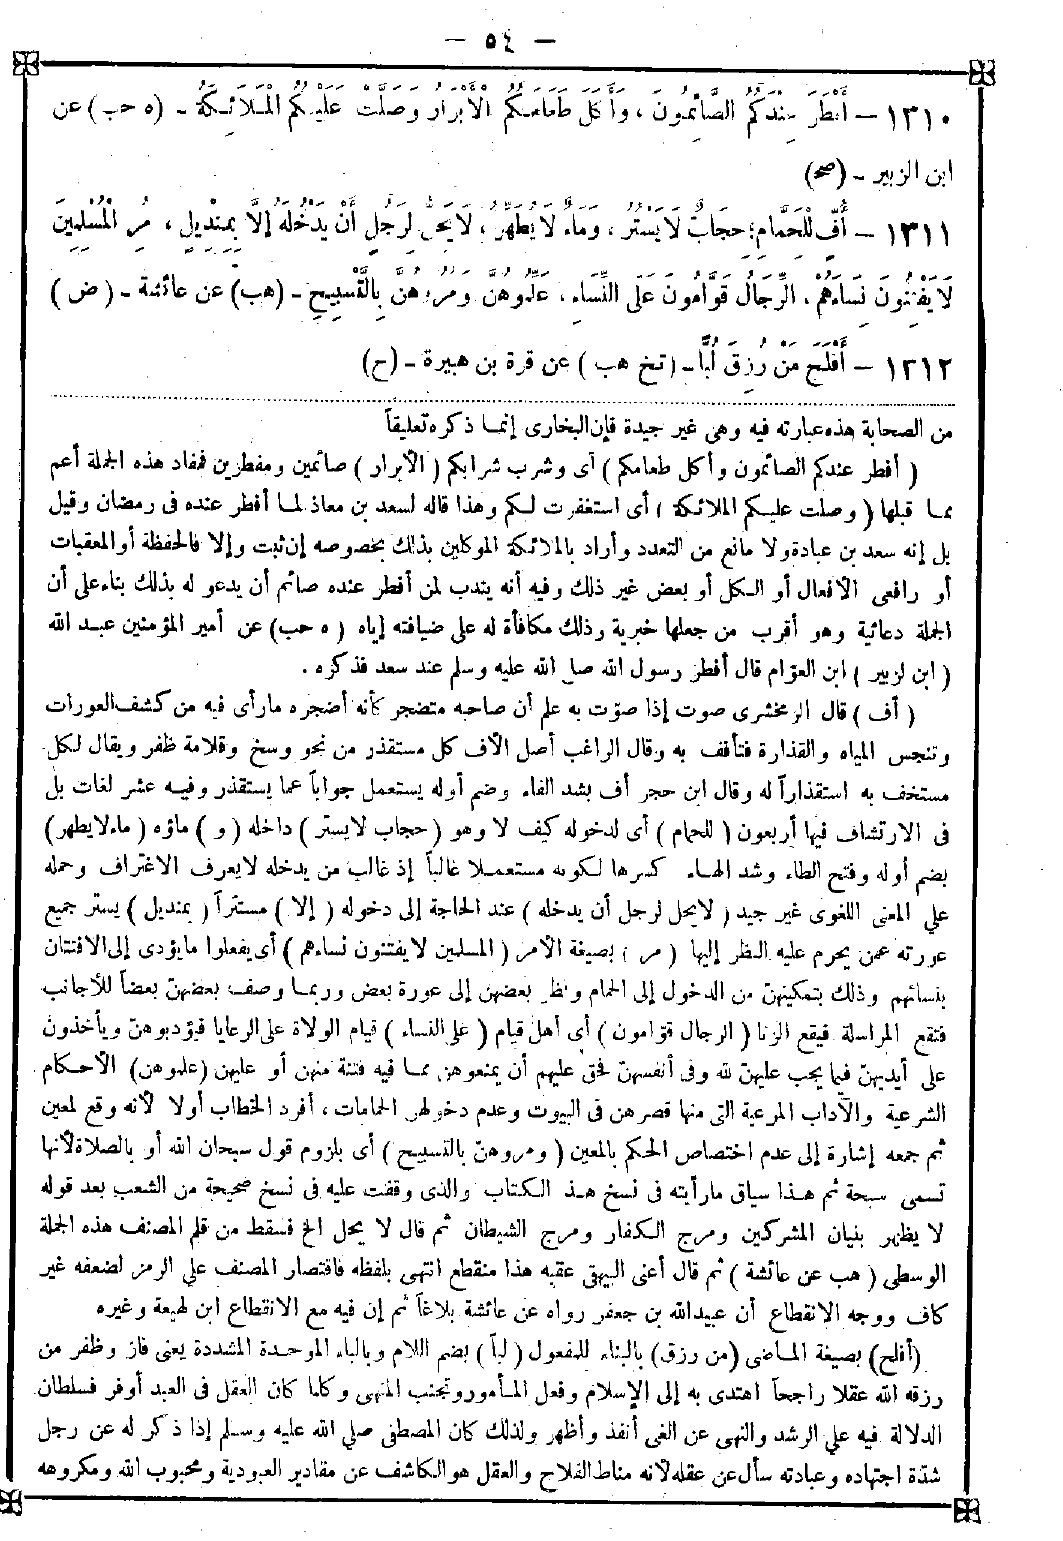 — ٥٤ —
١٣١٠ — أَفْطَرَ عِنْدَكُمُ الصَّائِمُونَ ، وَأَكَلَ طَعَامَكُمُ الْأَبْرَارُ وَصَلَّتْ عَلَيْكُمُ الْمَلَائِكَةُ - (ه حب) عن
ابن الزبير - (صح)
١٣١١ — أُفٍّ لِلْحَمَّامِ؛ حِجَابٌ لَا يَسْتُرُ ، وَمَاءٌ لَا يُطَهِّرُ ، لَا يَحِلُّ لِرَجُلٍ أَنْ يَدْخُلَهُ إِلَّا بِمِنْدِيلٍ ، مُرِ الْمُسْلِمِينَ
لَا يَفْتِنُونَ نِسَاءَهُمْ ، الرِّجَالُ قَوَّامُونَ عَلَى النِّسَاءِ ، عَلِّمُوهُنَّ وَمُرُوهُنَّ بِالتَّسْبِيحِ - (هب) عن عائشة - ( ض )
١٣١٢ — أَفْلَحَ مَنْ رُزِقَ لُبًّا - ( تخ هب ) عن قرة بن هبيرة - (ح)
من الصحابة هذه عبارته فيه وهى غير جيدة فإن البخارى إنما ذكره تعليقاً
( أفطر عندكم الصائمون وأكل طعامكم ) أى وشرب شرابكم ( الأبرار ) صائمين ومفطرين فمفاد هذه الجملة أعم
مما قبلها ( وصلت عليكم الملائكة ) أى استغفرت لكم وهذا قاله لسعد بن معاذ لما أفطر عنده فى رمضان وقيل
بل إنه سعد بن عبادة ولا مانع من التعدد وأراد بالملائكة الموكلين بذلك بخصوصه إن ثبت وإلا فالحفظة أو المعقبات
أو رافعى الأفعال أو الكل أو بعض غير ذلك وفيه أنه يندب لمن أفطر عنده صائم أن يدعو له بذلك بناء على أن
الجملة دعائية وهو أقرب من جعلها خبرية وذلك مكافأة له على ضيافته إياه ( ه حب) عن أمير المؤمنين عبد الله
( ابن لزبير ) ابن العوّام قال أفطر رسول الله صلى الله عليه وسلم عند سعد فذكره .
( أف ) قال الزمخشرى صوت إذا صوّت به علم أن صاحبه متضجر كأنه أضجره مارأى فيه من كشف العورات
وتنجس المياه والقذارة فتأفف به وقال الراغب أصل الأف كل مستقذر من نحو وسخ وقلامة ظفر ويقال لكل
مستخف به استقذاراً له وقال ابن حجر أف بشد الفاء وضم أوله يستعمل جواباً عما يستقذر وفيه عشر لغات بل
فى الارتشاف فيها أربعون ( للحمام ) أى لدخوله كيف لا وهو ( حجاب لايستر ) داخله ( و ) ماؤه ( ماء لايطهر)
بضم أوله وفتح الطاء وشد الهاء كسرها لكونه مستعملا غالباً إذ غالب من يدخله لايعرف الاغتراف وحمله
على المعنى اللغوى غير جيد ( لايحل لرجل أن يدخله ) عند الحاجة إلى دخوله ( إلا ) مستتراً ( بمنديل ) يستر جميع
عورته عمن يحرم عليه النظر إليها ( مر ) بصيغة الأمر ( المسلمين لايفتنون نساءهم ) أى يفعلوا مايؤدى إلى الافتتان
بنسائهم وذلك بتمكينهنّ من الدخول إلى الحمام ونظر بعضهن إلى عورة بعض وربما وصف بعضهنّ بعضاً للأجانب
فتقع المراسلة فيقع الزنا ( الرجال قوّامون ) أى أهل قيام ( على النساء ) قيام الولاة على الرعايا فيؤدبوهنّ ويأخذون
على أيديهنّ فيما يجب عليهنّ لله وفى أنفسهنّ فحق عليهم أن يمنعوهن مما فيه فتنة منهن أو عليهن (علموهن) الأحكام
الشرعية والآداب المرعية التى منها قصرهن فى البيوت وعدم دخولهن الحمامات ، أفرد الخطاب أولا لأنه وقع لمعين
ثم جمعه إشارة إلى عدم اختصاص الحكم بالمعين ( ومروهنّ بالتسبيح ) أى بلزوم قول سبحان الله أو بالصلاة لأنها
تسمى سبحة ثم هذا سياق مارأيته فى نسخ هذ الكتاب والذى وقفت عليه فى نسخ صحيحة من الشعب بعد قوله
لا يظهر بنيان المشركين ومرج الكفار ومرج الشيطان ثم قال لا يحل الخ فسقط من قلم المصنف هذه الجملة
الوسطى ( هب عن عائشة ) ثم قال أعنى البيهقى عقبه هذا منقطع انتهى بلفظه فاقتصار المصنف على الرمز لضعفه غير
كاف ووجه الانقطاع أن عبيدالله بن جعفر رواه عن عائشة بلاغاً ثم إن فيه مع الانقطاع ابن لهيعة وغيره
(أفلح) بصيغة الماضى (من رزق) بالبناء للمفعول ( لباً ) بضم اللام وبالباء الموحدة المشددة يعنى فاز وظفر من
رزقه الله عقلا راجحاً اهتدى به إلى الإسلام وفعل المأمور وتجنب المنهى وكلما كان العقل فى العبد أوفر فسلطان
الدلالة فيه على الرشد والنهى عن الغى أنفذ وأظهر ولذلك كان المصطفى صلى الله عليه وسلم إذا ذكر له عن رجل
شدّة اجتهاده وعبادته سأل عن عقله لأنه مناط الفلاح والعقل هو الكاشف عن مقادير العبودية ومحبوب الله ومكروهه